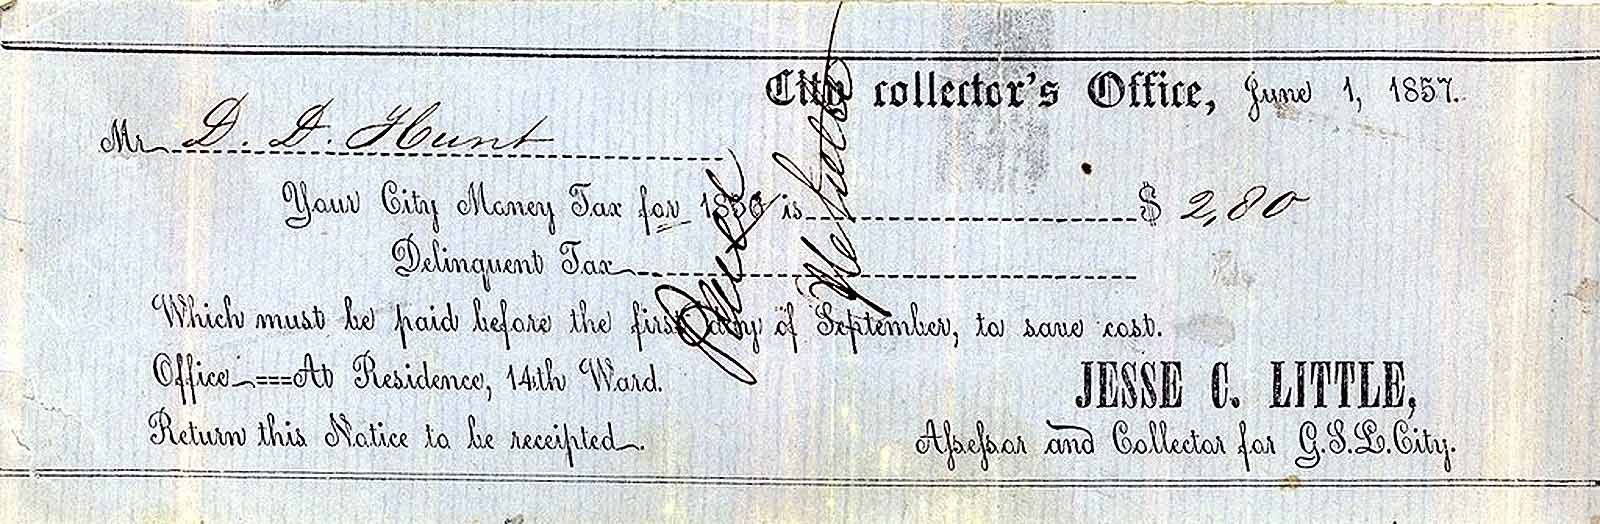 City collector's Office, June 1, 1857.
Mr D. D. Hunt
Your City Money Tax for 1856 is $ 2,80
Delinquent Tax
Which must be paid before the first day of September, to save cost.
Office===At Residence, 14th Ward.
JESSE C. LITTLE,
Return this Notice to be receipted.
Assessor and Collector for G.S.L. City.